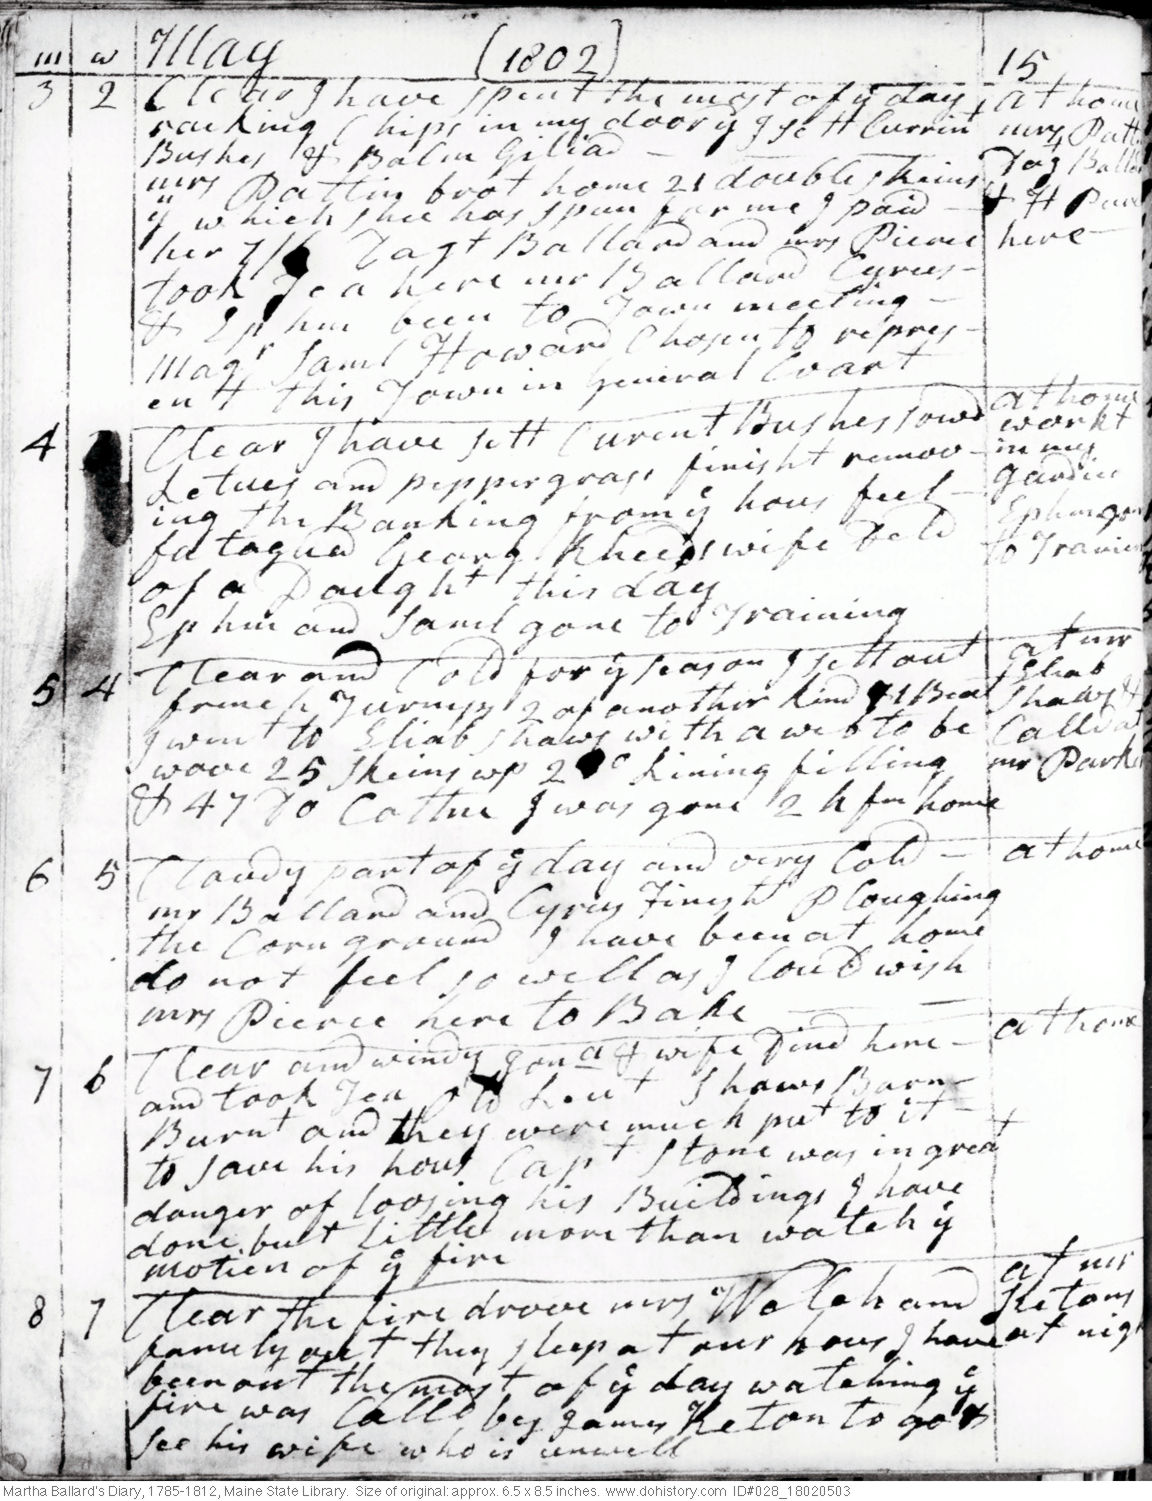 m w May (1802) 15
3 2 Clear I have spent the most of ÿ day at home
racking Chips in my door ÿ I sett Currin mrs Patt
Bushes & Balm Giliad — Dag Balla
mrs Pattin brot home 21 double skeins & H Pier
ÿ which shee has spun for me I paid — here —
her 7/6 Dagt Ballard and mrs Pierce
took Tea here mr Ballard Cyrus -
& Ephm been to Town meeting -
Magr Saml Howard Chosen to repres-
ent this Town in General Coart
4 Clear I have sett Curent Bushes sowd at home
Letues and peppergrass finisht remov- workt
ing the Banking from ÿ hous feel - in my
fatagud Georg Rheeds wife Deld gardin
of a Daught this day Ephm gon
Ephm and Saml gone to Training to Trainin
5 4 Clear and Cold for ÿ season I sett out at mr
french Turnips 2 of another kind & 1 Beat Eliab
I went to Eliab Shaws with a web to be Shaws &
wove 25 skeins wp 2 Lining filling Calld at
& 47 Do Cottne I was gone 2 h fm home mr Parke
6 5 Cloudy part of ÿ day and very Cold — at home
mr Ballard and Cyrus Finisht Ploughing
the Corn ground I have been at home
do not feel so well as I Coud wish
mrs Pierce here to Bake —
7 6 Clear and windy Jona & wife Dind here — at home
and took Tea old Leut Shaws Barn -
Burnt and they were much put to it -
to save his hous Capt Stone was in great
danger of loosing his Buildings I have
done but little more than watch ÿ
motion of ÿ fire
8 7 Clear the fire drove mrs Welch and at mr
family out they sleep at our hous I have Ketons
been out the most of ÿ day watching ÿ at nigh
fire was Calld by James Keton to go &
see his wife who is unwell
Martha Ballard's Diary, 1785-1812, Maine State Library. Size of original: approx. 6.5 x 8.5 inches. www.dohistory.com ID#028_18020503